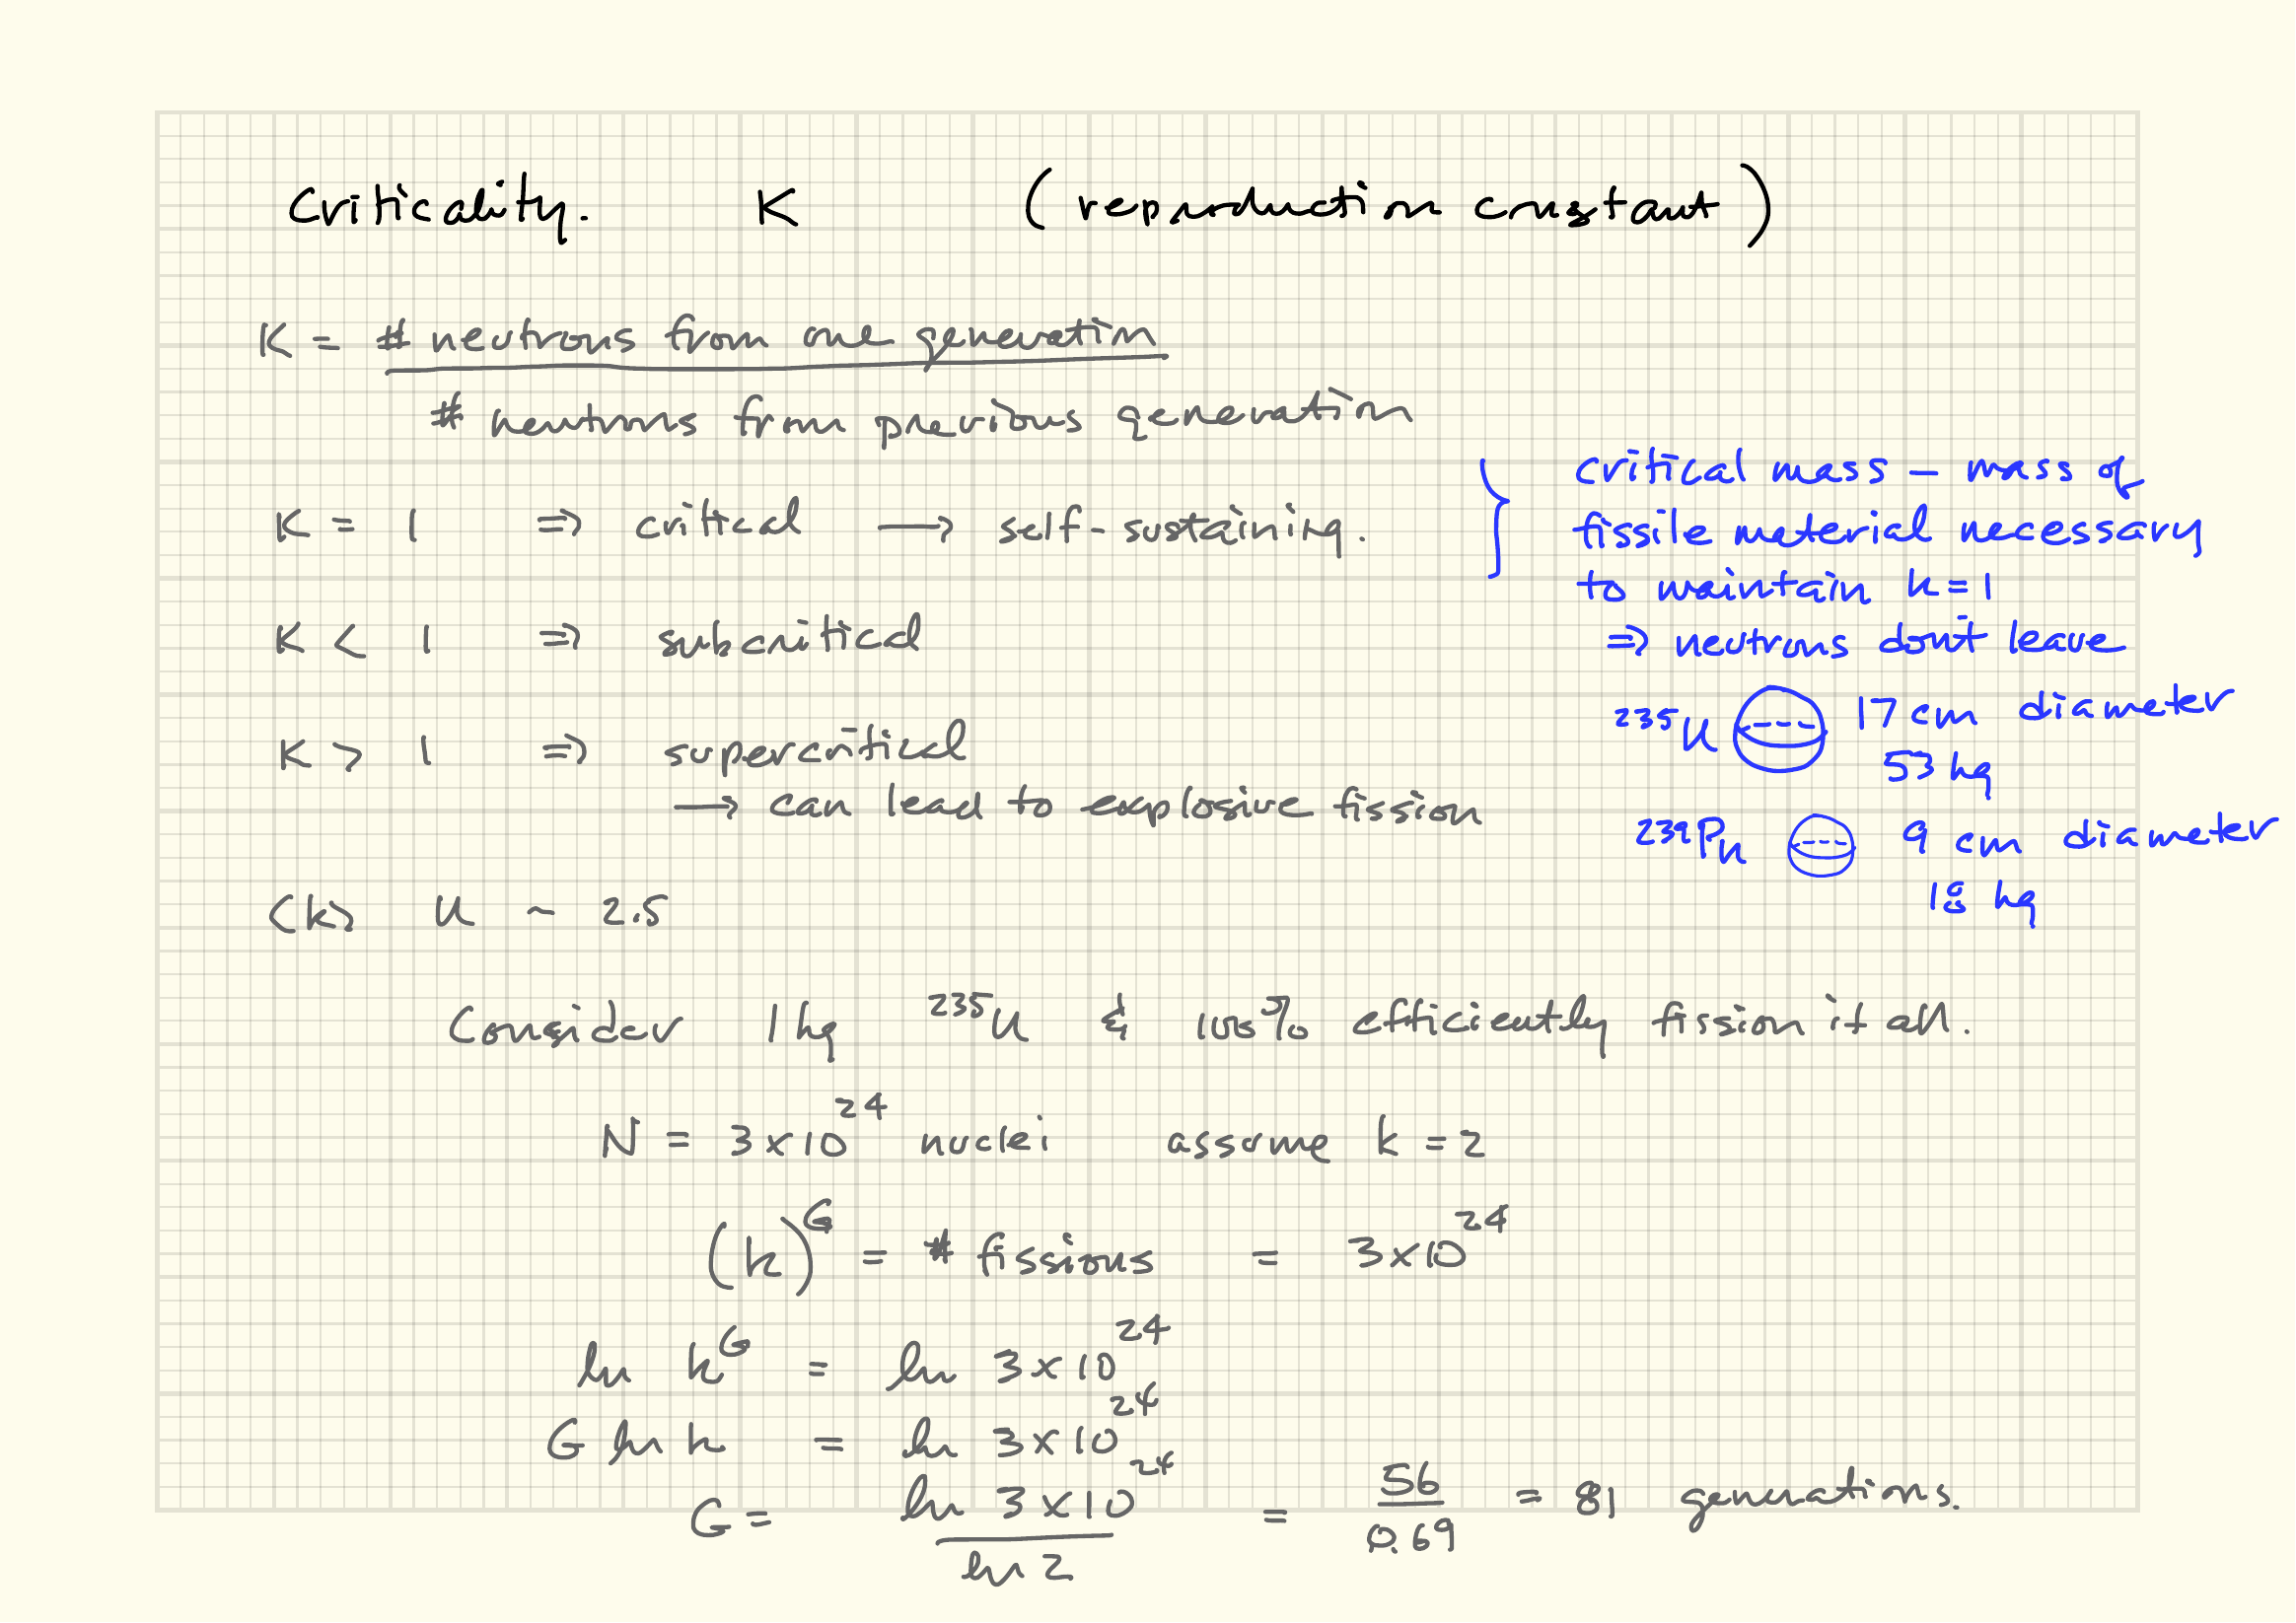 Criticality. K (reproduction constant)
K = # neutrons from one generation
# neutrons from previous generation
K = 1 ⇒ critical → self-sustaining.
K < 1 ⇒ subcritical
K > 1 ⇒ supercritical
→ can lead to explosive fission
} critical mass – mass of
fissile material necessary
to maintain k = 1
⇒ neutrons don't leave
²³⁵U 17 cm diameter
53 kg
²³⁹Pu 9 cm diameter
18 kg
⟨k⟩ U ~ 2.5
Consider 1 kg ²³⁵U & 100% efficiently fission it all.
N = 3 x 10²⁴ nuclei assume k = 2
(k)ᴳ = # fissions = 3 x 10²⁴
ln kᴳ = ln 3 x 10²⁴
G ln k = ln 3 x 10²⁴
G = ln 3 x 10²⁴ / ln 2 = 56 / 0.69 = 81 generations.